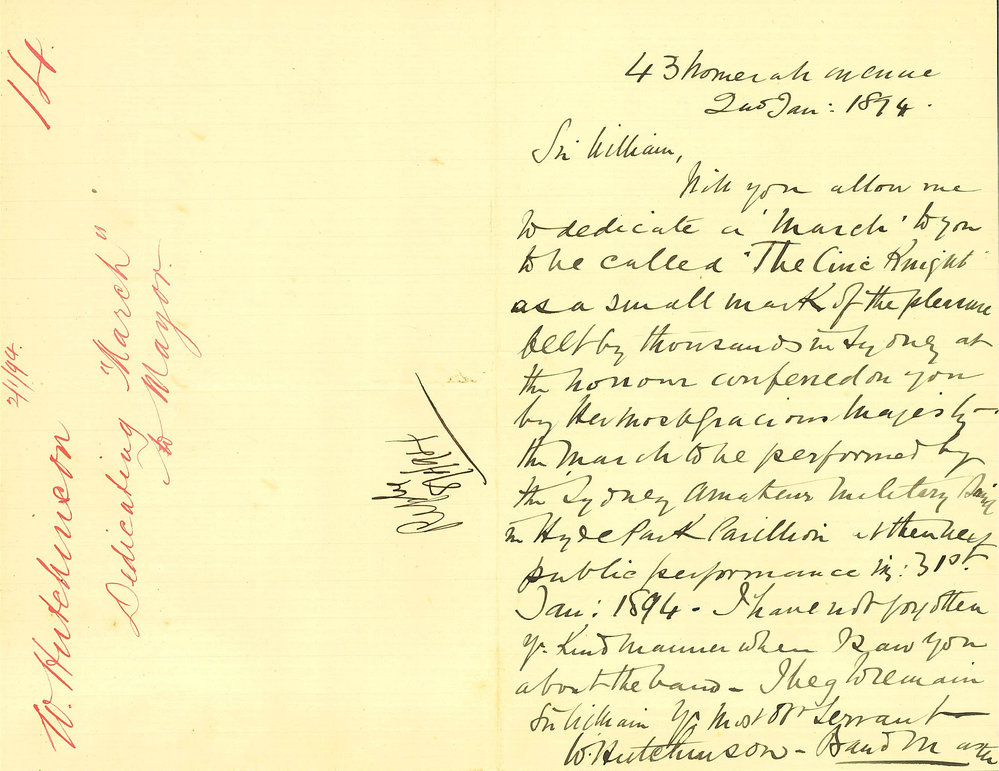 14.
W. Hutchinson 2/1/94.
Dedicating "March"
to Mayor.
8/1/94
43 Womerah avenue
2nd Jan: 1894.
Sir William,
Will you allow me
to dedicate a 'March' to you
to be called 'The Civic Knight'
as a small mark of the pleasure
felt by thousands in Sydney at
the honour conferred on you
by Her most Gracious Majesty -
the march to be performed by
the Sydney Amateur Military Band
in Hyde Park Pavillion at their next
public performance viz: 31st.
Jan: 1894 - I have not forgotten
yr. Kind manner when I saw you
about the band - I beg to remain
Sir William Yr. most Obt Servant
W. Hutchinson - Band Master